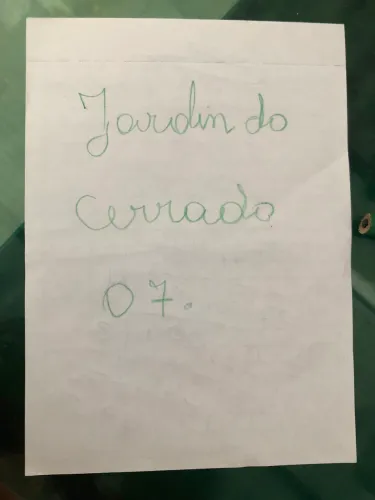 Jardin do
Cerrado
07.